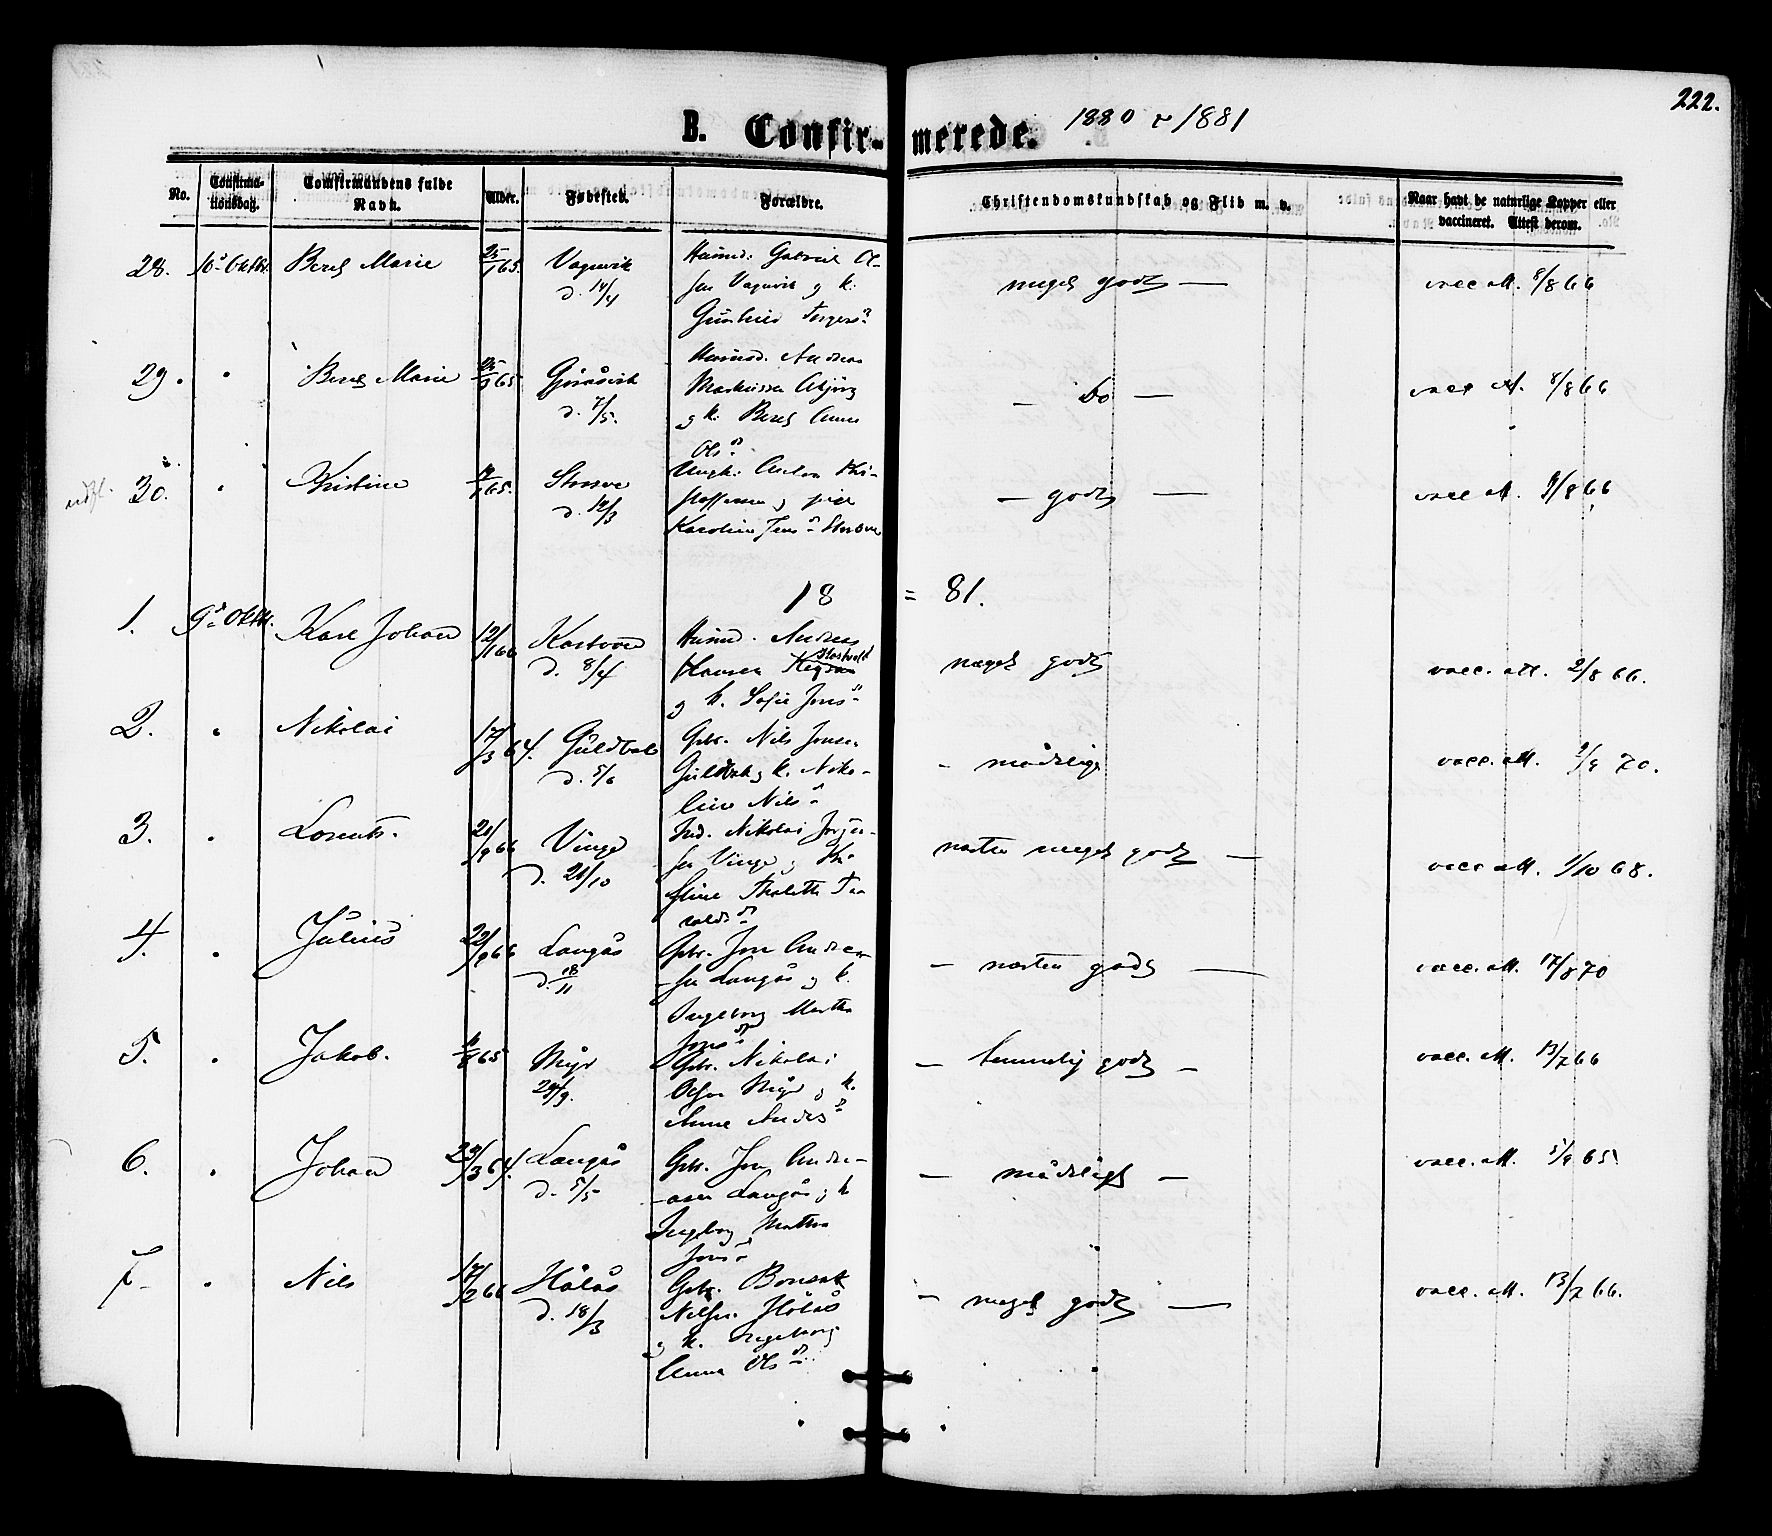 222.
B. Confirmerede. 1880 & 1881
No.
Confirmationsdag.
Comfirmandens fulde Navn.
Alder.
Fødested.
Forældre.
Christendomskundskab og Flid m. v.
Naar havt de naturlige Kopper eller vaccineret. Attest derom.
28. 10de Oktbr. Marie 25/1 65. Vagnvik d. 14/4
Husmd. Gabriel Ol-
sen Vagnvik og k.
meget godt —
vacc att. 8/8 66
29. " Marie 65 d. 7/5.
Husmd. Andreas
og k. Anna
Olsd.
— Do —
vacc att. 8/8 66
30. " Kristine 65. Storøve d. 12/3
Ungk. Anton Kri-
stoffersen og pige
Karoline Jensd. Storøve
— godt —
vacc att. 9/8 66
18 = 81.
1. 9de Oktbr. Karl Johan 12/1 66 d. 8/4
Husmd. Andreas
Hansen
og k. Sofie Jonsd.
meget godt
vacc. att. 2/8 66.
2. " Nikolai 17/3 64. Guldbak d. 5/6
Gbr. Nils Jonsen
Guldbak og k. Niko-
line Nilsd.
- mådelig
vacc. att. 70.
3. " Lorents. 20/9 66 Vinge d. 21/10
Ind. Nikolai Jørgen-
sen Vinge og Kri-
stine
næsten meget godt —
vacc att. 1/10 68.
4. " Julius 22/9 66 Langås d. 18/11
Gbr. Jon Andrea-
sen Langås og k.
Ingeborg Martha
Jonsd.
— næsten godt —
vacc. att. 17/8 70
5. " Jakob. 65 Myr 24/9.
Gbr. Nikolai
Olsen Myr og k.
Anna Andersd.
— temmelig godt —
vacc. att. 13/7 66
6. " Johan 23/3 64. Langås d. 5/5
Gbr. Jon Andre-
asen Langås og k
Ingeborg Martha
Jonsd.
— mådeligt —
vacc. att. 5/9 65
7. " Nils 17/2 66 Hålås d. 18/3
Gbr. Bonsak
Nilsen Hålås
og k. Ingeborg
Anna Olsd.
- meget godt —
vacc. att. 13/7 66.